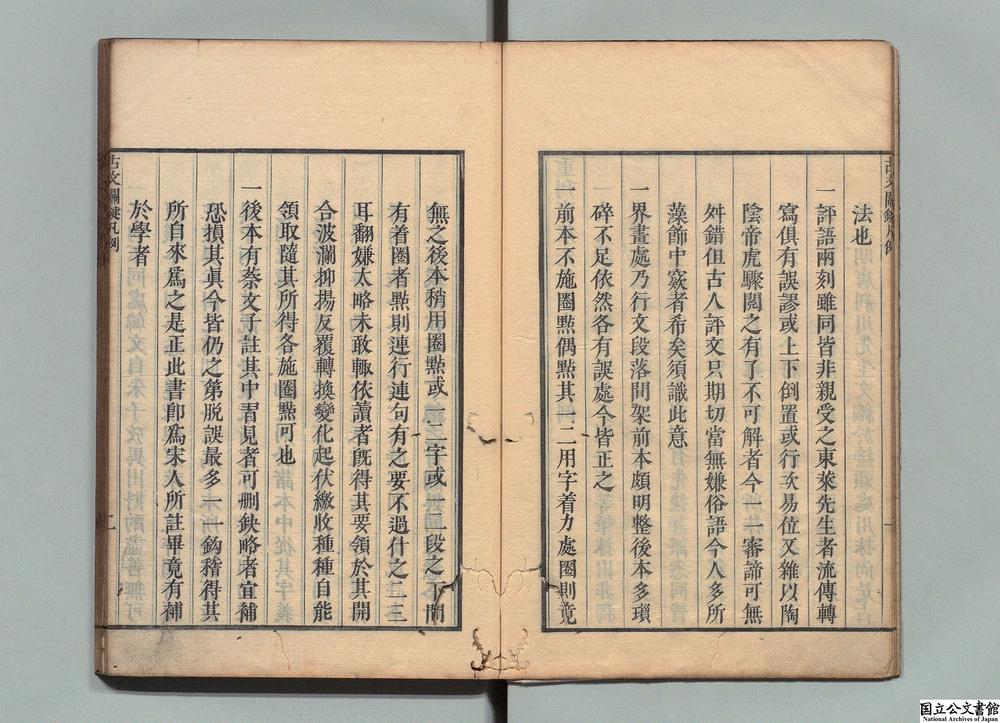 古文關鍵凡例
法也
一評語兩刻雖同皆非親受之東萊先生者流傳轉
寫俱有誤謬或上下倒置或行次易位又雜以陶
陰帝虎驟閱之有了不可解者今一一審諦可無
舛錯但古人評文只期切當無嫌俗語今人多所
藻飾中窾者希矣須識此意
一界畫處乃行文段落間架前本頗明整後本多瑣
碎不足依然各有誤處今皆正之
一前本不施圈點偶點其一二用字着力處圈則竟
無之後本稍用圈點或一二字或一二段之下間
有着圈者點則連行連句有之要不過什之二三
耳翻嫌太略未敢輒依讀者旣得其要領於其開
合波瀾抑揚反覆轉換變化起伏繳收種種自能
領取隨其所得各施圈點可也
一後本有蔡文子註其中習見者可刪缺略者宜補
恐損其眞今皆仍之第脫誤最多一一鈎稽得其
所自來爲之是正此書卽爲宋人所註畢竟有補
於學者
古文關鍵凡例
二
国立公文書館
National Archives of Japan